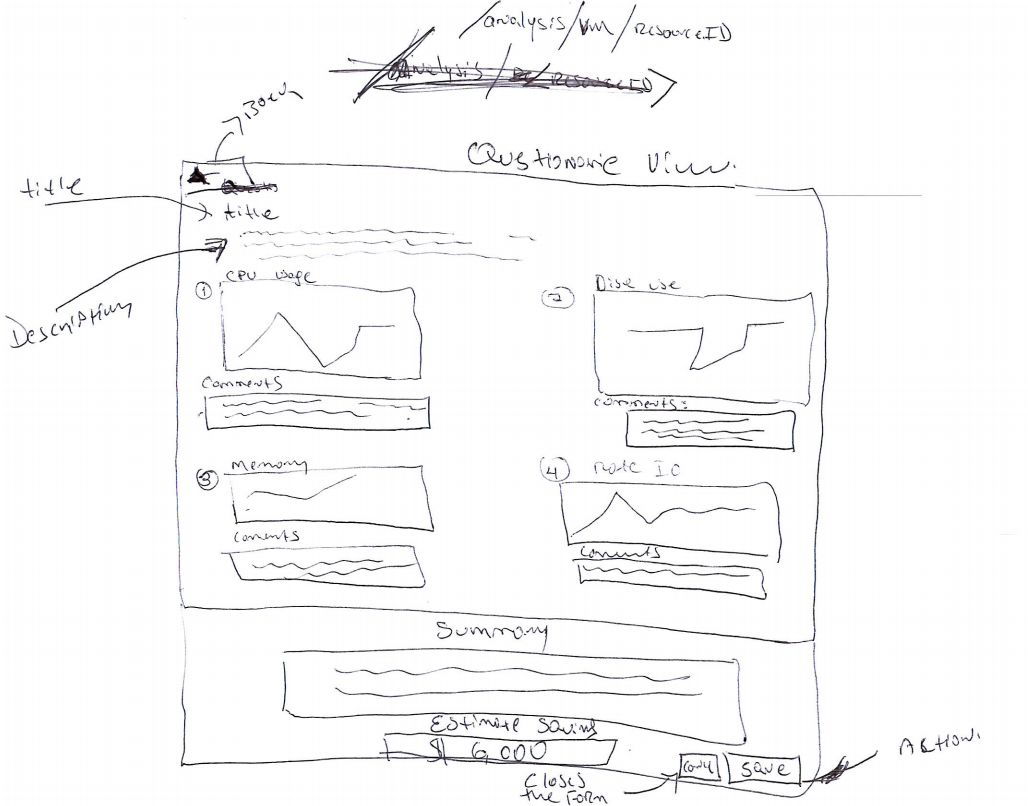 /analysis/vm/resourceID
Analysis / / RESOURCEID
Back
Questionarie View.
title
title
Description
1 CPU usage
2 Disk use
Comments
Comments:
3 Memory
4 Note IO
Coments
Coments
Summary
Estimate Saving
$ 6,000
Save
Actions
Closes
the Form